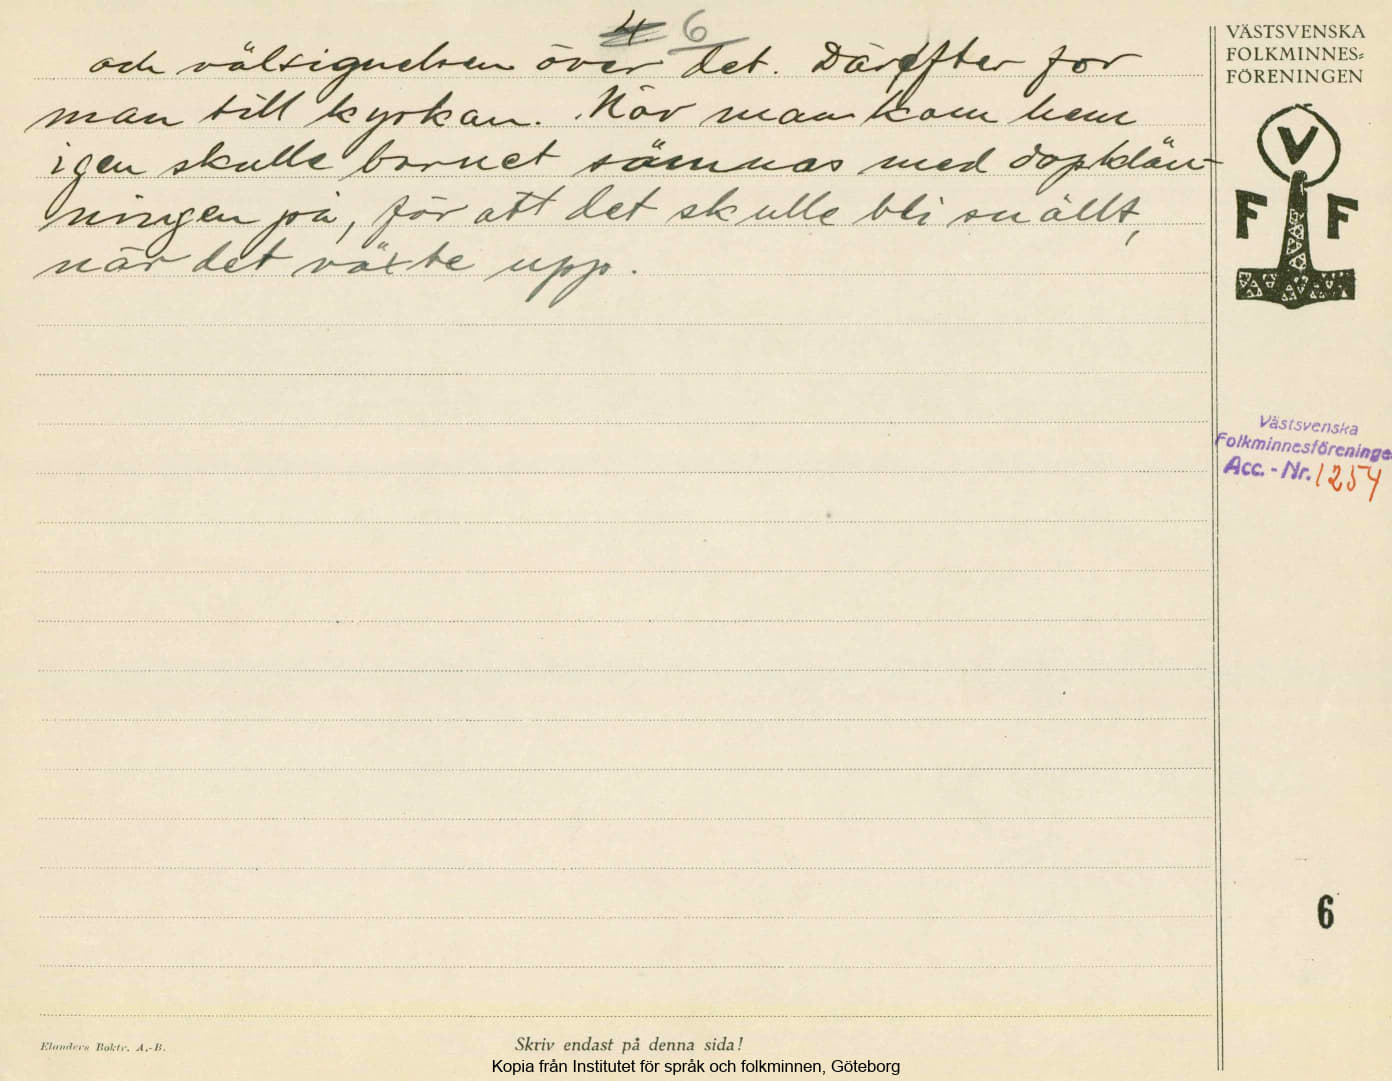 6
och välsignelsen över det. Därefter for
man till kyrkan. När man kom hem
igen skulle barnet sömnas med dopklän-
ningen på, för att det skulle bli snällt,
när det växte upp.
VÄSTSVENSKA
FOLKMINNES=
FÖRENINGEN
V
F F
Västsvenska
Folkminnesföreninge
Acc. - Nr. 1254
6
Elanders Boktr. A.-B.
Skriv endast på denna sida!
Kopia från Institutet för språk och folkminnen, Göteborg